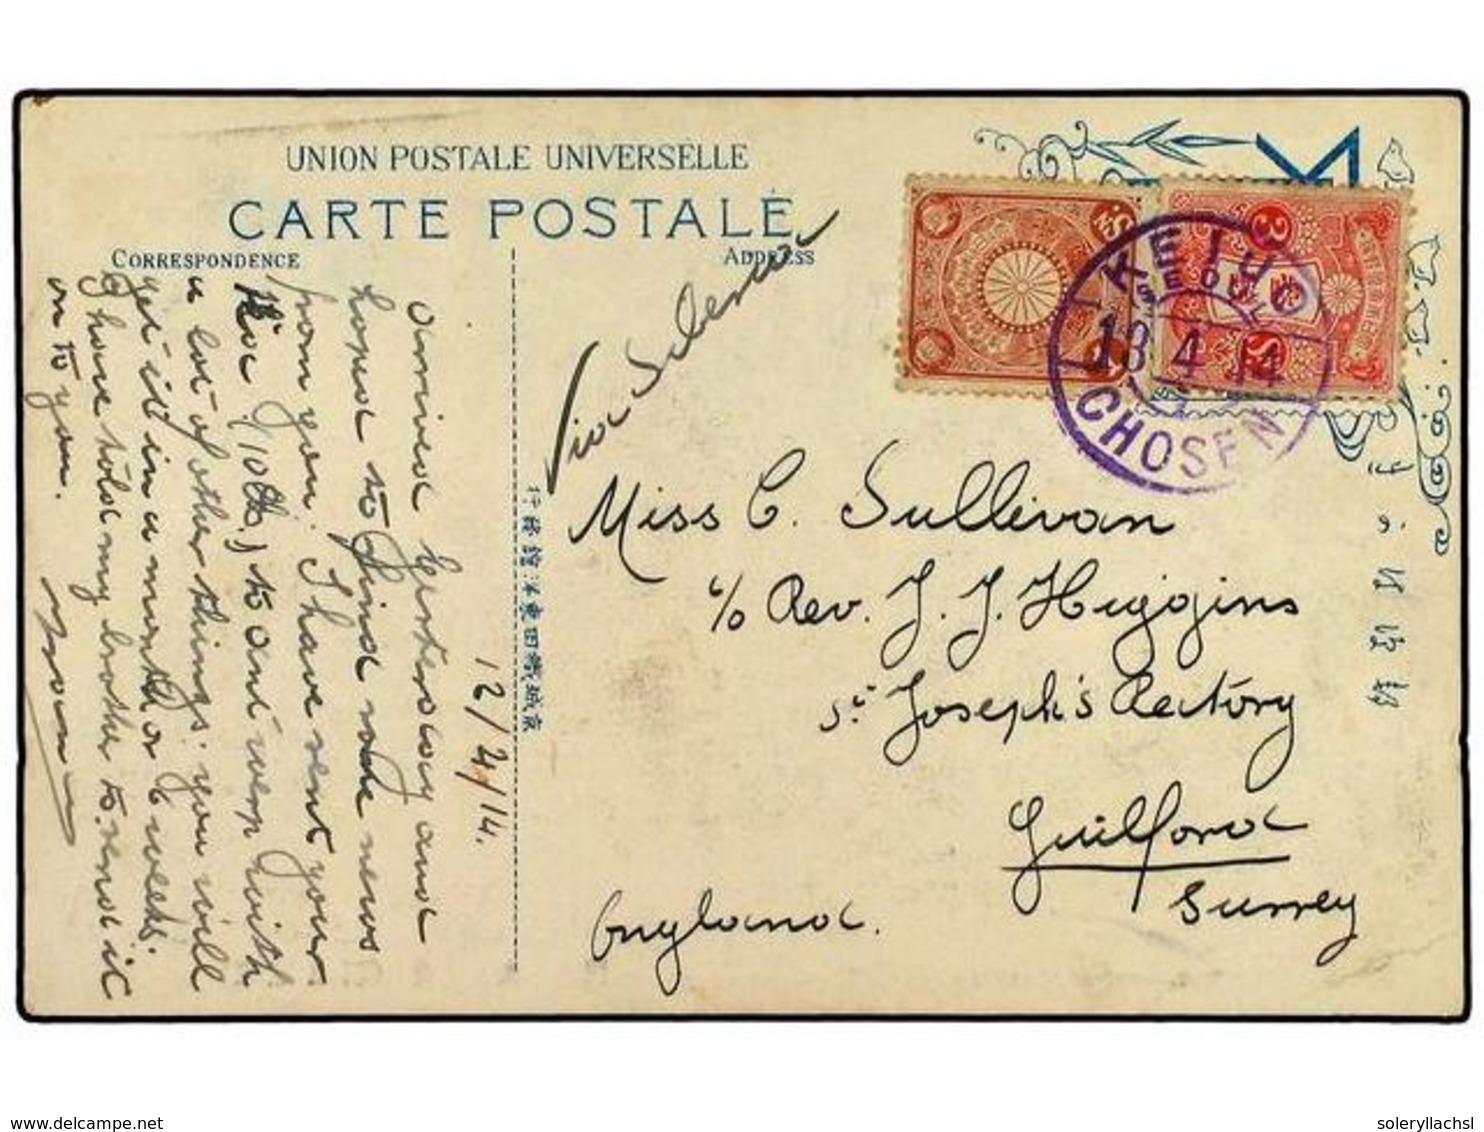 UNION POSTALE UNIVERSELLE
CARTE POSTALE
CORRESPONDENCE
ADDRESS
12/4/14.
arrived yesterday and
hoped to find news
from you. I have sent your
to and with
a lot of other things. you will
get it in a month or 6 weeks.
I have told my brother to send it
on to you.
Via Siberia
KEIJO
SEOUL
13 4 14
CHOSEN
3
Miss C. Sullivan
c/o Rev. J. J. Higgins
St Joseph's Rectory
Guilford
Surrey
England.
delcampe.net
soleryllachsl